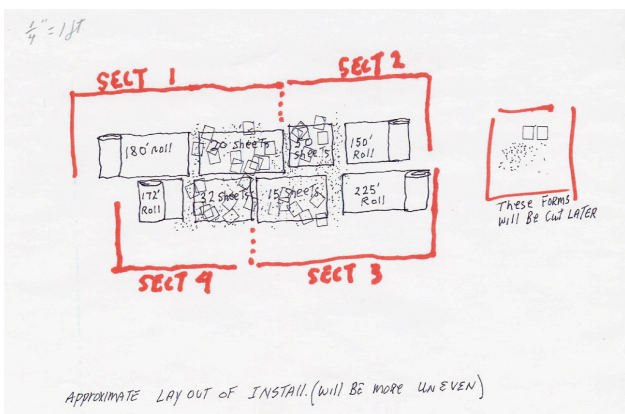 1/4" = 1 ft
SECT 1
SECT 2
180' Roll
20 sheets
50
sheets
150'
Roll
172'
Roll
32 sheets
15 sheets
225'
Roll
SECT 4
SECT 3
These Forms
will Be Cut LATER
Approximate LAYOUT OF INSTALL. (will BE more UNEVEN)